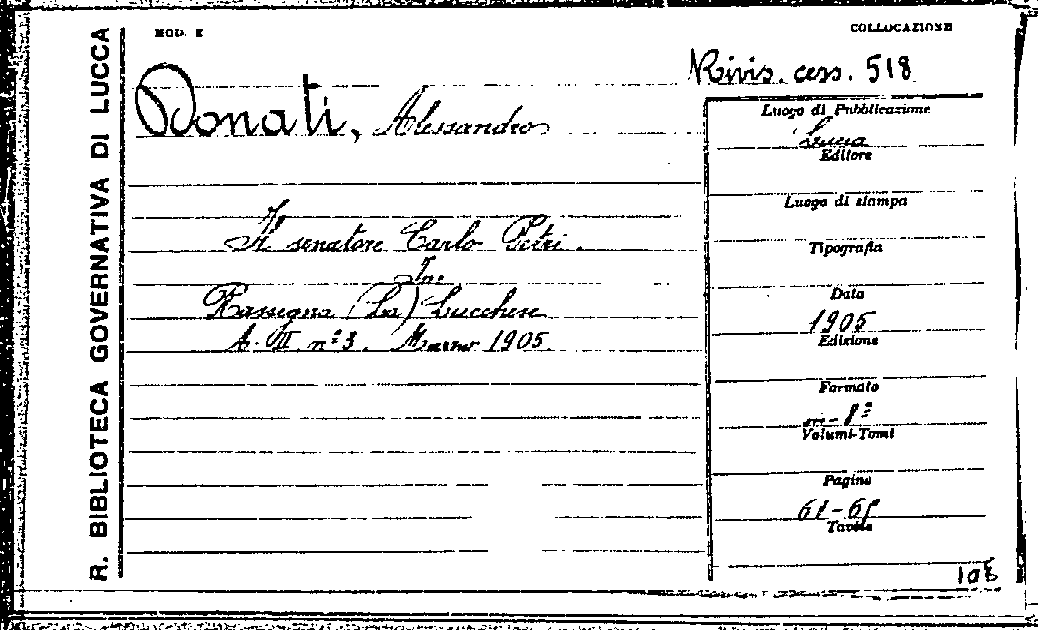 MOD. E
COLLOCAZIONE
Rivis. cess. 518
Donati, Alessandro
R. BIBLIOTECA GOVERNATIVA DI LUCCA
Il senatore Carlo Petri.
In:
Rassegna (La) Lucchese
A. II n° 3. Marzo 1905.
Luogo di Pubblicazione
Lucca
Editore
Luogo di stampa
Tipografia
Data
1905
Edizione
Formato
in-8°
Volumi-Tomi
Pagine
Tavole